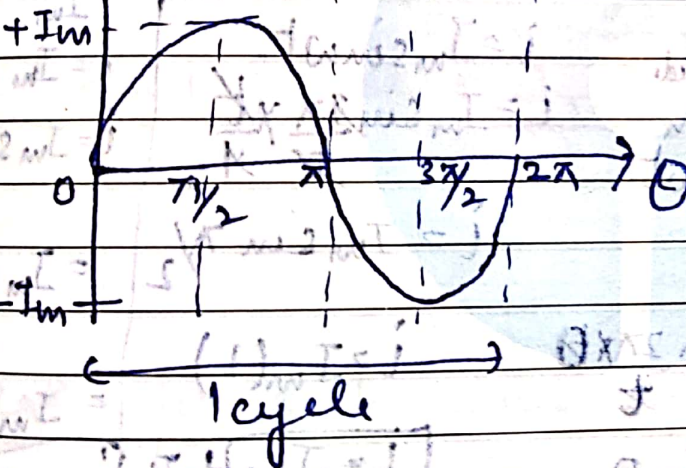 +Im
0 π/2 π 3π/2 2π θ
-Im
1 cycle
t